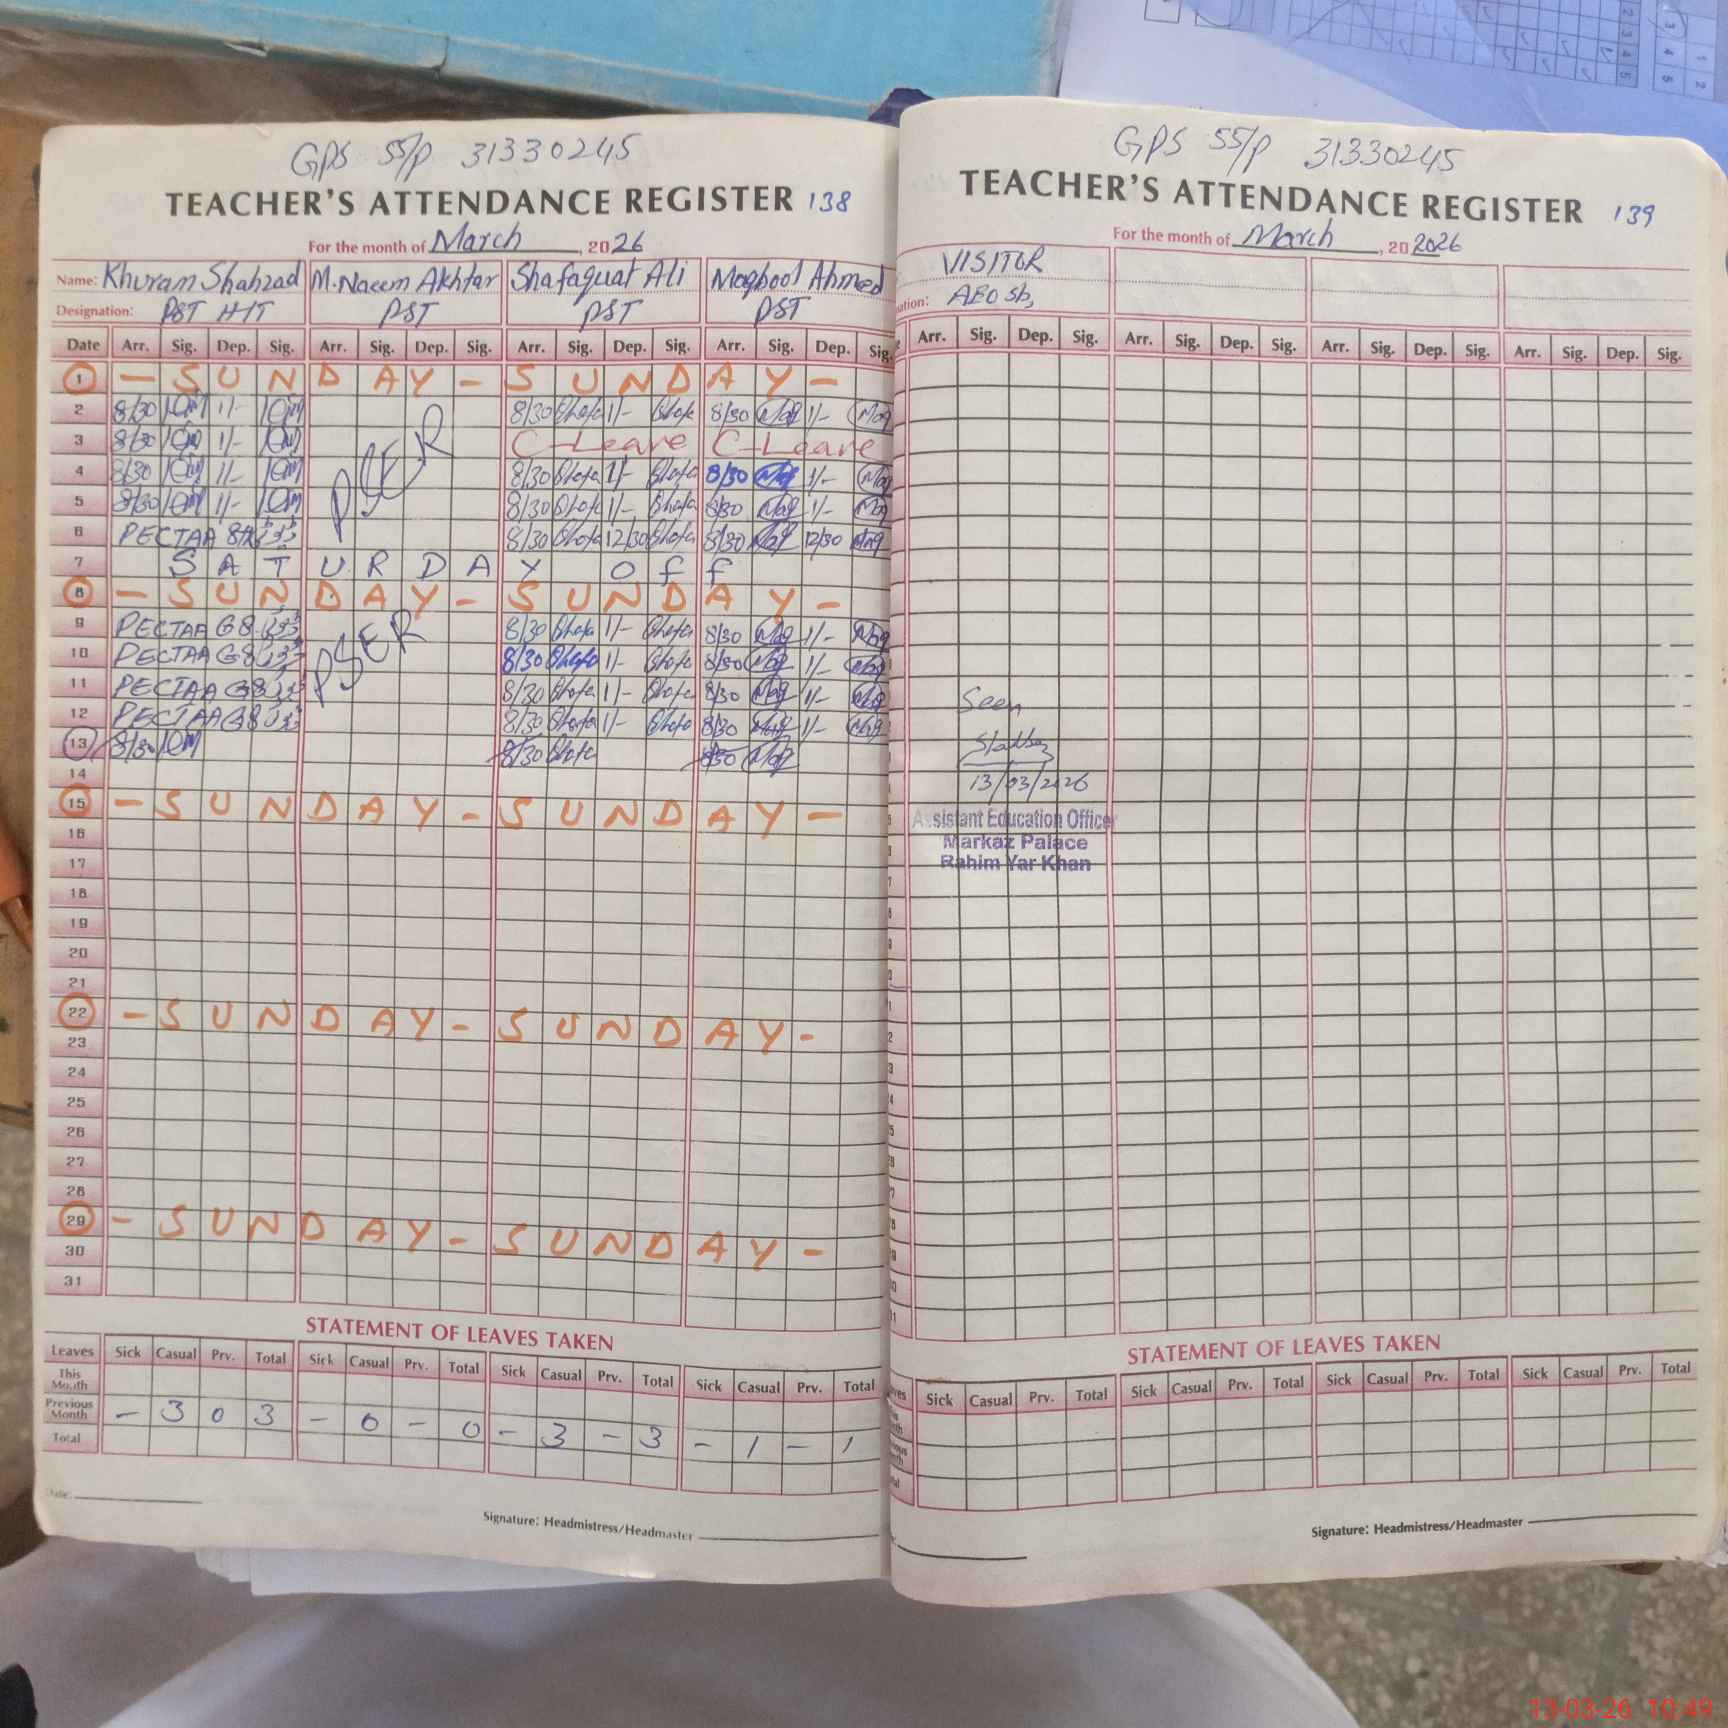 GPS 55/P 31330245
TEACHER'S ATTENDANCE REGISTER 138
For the month of March, 2026
Name: Khuram Shahzad M.Naeem Akhtar Shafaquat Ali Maqbool Ahmed
Designation: PST H-T PST PST PST
Date Arr. Sig. Dep. Sig. Arr. Sig. Dep. Sig. Arr. Sig. Dep. Sig. Arr. Sig. Dep. Sig.
1 - SUNDAY - SUNDAY -
2 8/30 1/- 8/30 Shafa 1/- Shafa 8/30 Maq 1/- Maq
3 8/30 1/- C-Leave C-Leave
4 8/30 1/- 8/30 Shafa 1/- Shafa 8/30 Maq 1/- Maq
5 8/30 1/- 8/30 Shafa 1/- Shafa 8/30 Maq 1/- Maq
6 PECTAA 8/30 Shafa 12/30 Shafa 8/30 Maq 12/30 Maq
7 SATURDAY Off
8 - SUNDAY - SUNDAY -
9 PECTAA PSER 8/30 Shafa 1/- Shafa 8/30 Maq 1/- Maq
10 PECTAA 8/30 Shafa 1/- Shafa 8/30 Maq 1/- Maq
11 PECTAA 8/30 Shafa 1/- Shafa 8/30 Maq 1/- Maq
12 PECTAA 8/30 Shafa 1/- Shafa 8/30 Maq 1/- Maq
13 8/30 8/30 Shafa 8/30 Maq
14
15 - SUNDAY - SUNDAY -
16
17
18
19
20
21
22 - SUNDAY - SUNDAY -
23
24
25
26
27
28
29 - SUNDAY - SUNDAY -
30
31
STATEMENT OF LEAVES TAKEN
Leaves Sick Casual Prv. Total Sick Casual Prv. Total Sick Casual Prv. Total Sick Casual Prv. Total
This Month
Previous Month - 3 0 3 - 0 - 0 - 3 - 3 - 1 - 1
Total
Date:
Signature: Headmistress/Headmaster
GPS 55/P 31330245
TEACHER'S ATTENDANCE REGISTER 139
For the month of March, 20 2026
VISITOR
AEO sb,
Arr. Sig. Dep. Sig. Arr. Sig. Dep. Sig. Arr. Sig. Dep. Sig. Arr. Sig. Dep. Sig.
Seen
13/03/2026
Assistant Education Officer
Markaz Palace
Rahim Yar Khan
STATEMENT OF LEAVES TAKEN
Sick Casual Prv. Total Sick Casual Prv. Total Sick Casual Prv. Total Sick Casual Prv. Total
Signature: Headmistress/Headmaster
13-03-26 10:49